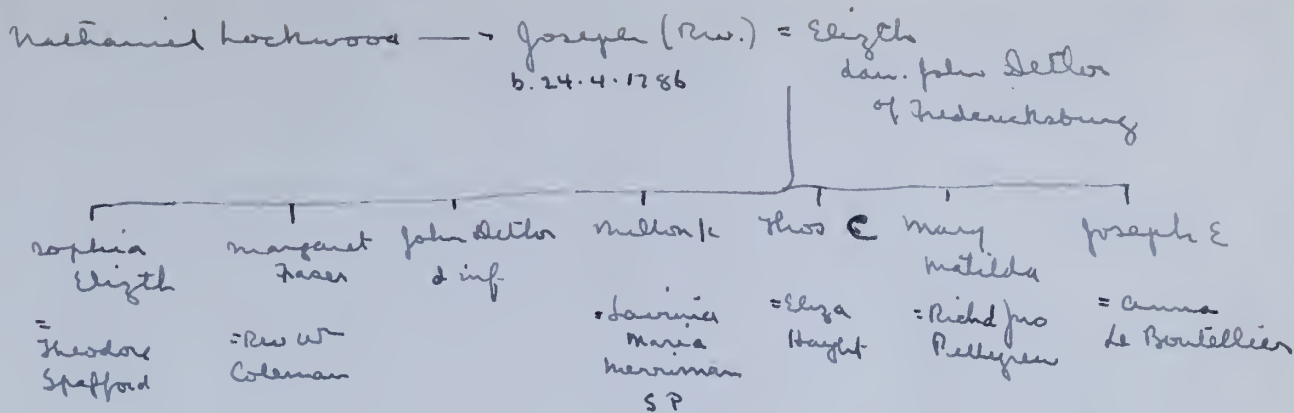 Nathaniel Lockwood — Joseph (Rev.) = Elizth
b. 24.4.1786
dau. John Detlor
of Fredericksburg
Sophia
Elizth
=
Theodore
Spafford
Margaret
Fraser
= Rev Wm
Coleman
John Detlor
d inf
Milton K
= Lavinia
Maria
Merriman
S P
Thos C
= Eliza
Haight
Mary
Matilda
= Richd Jno
Pettygrew
Joseph E
= Anna
Le Boutellier